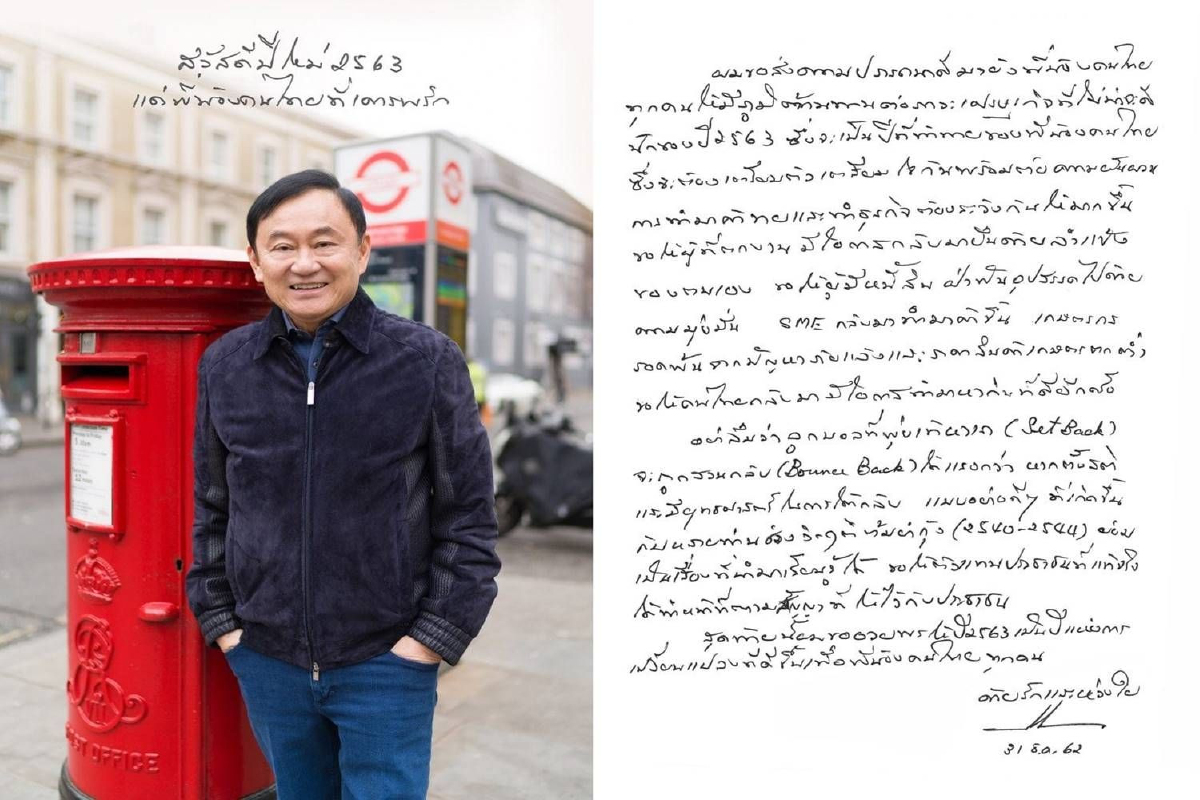 สวัสดีปีใหม่ 2563
แด่พี่น้องคนไทยที่เคารพรัก
POST OFFICE
ผมขอส่งความปรารถนาดีมายังพี่น้องคนไทย
ทุกคนให้มีภูมิต้านทานต่อภาวะเศรษฐกิจที่ไม่น่าจะดี
นักของปี 2563 ซึ่งจะเป็นปีที่ท้าทายของพี่น้องคนไทย
ซึ่งจะต้องเตรียมตัวเตรียมใจกันพร้อมด้วยความผันผวน
การทำมาค้าขายและทำธุรกิจต้องระวังกันให้มากขึ้น
ขอให้ผู้ที่ตกงาน มีโอกาสกลับมายืนด้วยลำแข้ง
ของตนเอง ขอให้ผู้มีหนี้สิน ฝ่าฟันอุปสรรคไปด้วย
ความมุ่งมั่น SME กลับมาทำมาค้าขึ้น เกษตรกร
รอดพ้นจากปัญหาภัยแล้งและราคาสินค้าเกษตรตกต่ำ
ขอให้คนไทยกลับมามีโอกาสทำมาหากินที่ดีอีกครั้ง
อย่าลืมว่าลูกบอลที่พุ่งเทียวเด (Set Back)
จะถูกสวนกลับ (Bounce Back) ได้แรงกว่า หากตั้งสติ
และมียุทธศาสตร์ในการโต้กลับ แบบอย่างดีๆ ที่เกิดขึ้น
กับหลายท่านช่วงวิกฤติต้มยำกุ้ง (2540-2544) ย่อม
เป็นเรื่องที่นำมาเรียนรู้ได้ ขอให้ตัวแทนประชาชนที่แท้จริง
ได้ทำหน้าที่ตามสัญญาที่ให้ไว้กับประชาชน
สุดท้ายนี้ผมขออวยพรให้ปี 2563 เป็นปีแห่งการ
เปลี่ยนแปลงที่ดีขึ้นเพื่อพี่น้องคนไทยทุกคน
ด้วยรักและห่วงใย
31 ธ.ค. 62